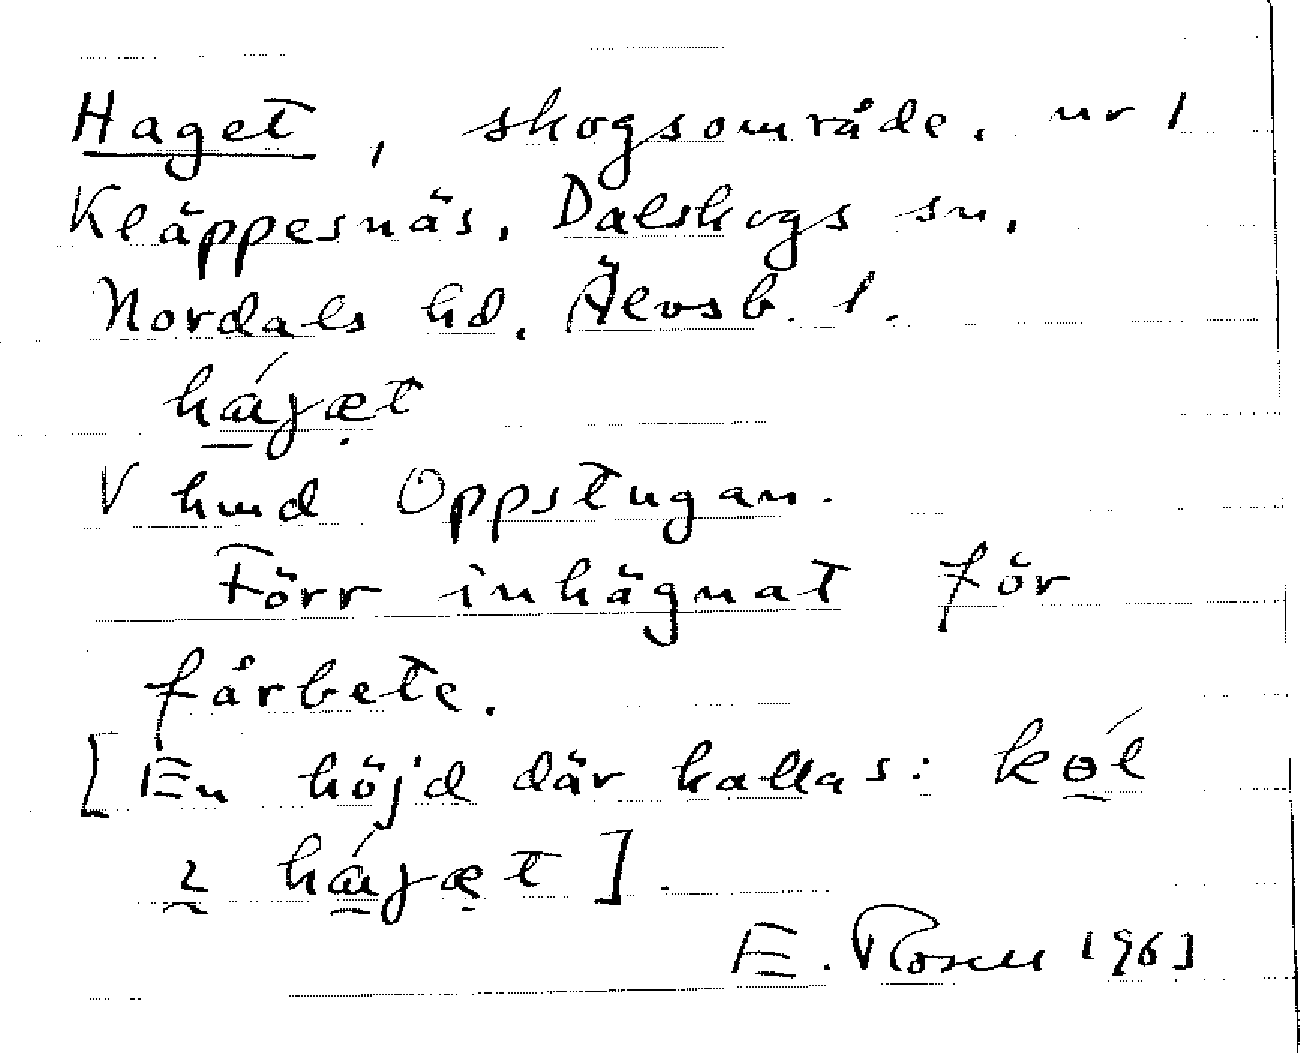 Haget, skogsområde. nr 1
Kläppesnäs, Dalskogs sn,
Nordals hd. Älvsb. l.
há̱jæ̣t
V hmd Oppstugan.
Förr inhägnat för
fårbete.
[En höjd där kallas: kɵ́l
ɩ hájæ̣t].
E. Rosell 1963